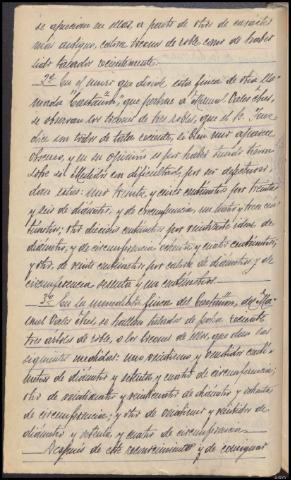 se aparecian en ellas, a parte de otros de carácter
mas antiguo, cuatro troncos de roble como de haber
sido talados recientemente.
2º En el muro que divide esta finca de otra lla-
mada que pertenece a Manuel
se observan los troncos de tres robles, que el Sr. Juez
dice son todos de tala reciente, si bien uno aparece
obscuro, y en su opinión es por haber tenido tierra
sobre si. Medidos con dificultad, por ser defectuosos,
dan estos: uno treinta y siete centímetros por treinta
y seis de diámetro, y de circunferencia, un metro y tres cen-
tímetros; otro diecisiete centímetros por veintisiete idem de
diámetro, y de circunferencia ochenta y cuatro centímetros;
y otro, de veinte centímetros por catorce de diámetro y de
circunferencia sesenta y un centímetros.
3º En la inmediata finca del de Ma-
nuel se hallan talados de poda reciente
tres árboles de roble, o los troncos de ellos, que dan las
siguientes medidas: uno veintiuno y veintidos centí-
metros de diámetro y setenta y cuatro de circunferencia;
otro de veinticuatro y veinticuatro de diámetro y ochenta
de circunferencia; y otro de veinticinco y veintidos de
diámetro y setenta y cuatro de circunferencia.
Después de este reconocimiento y de consignar